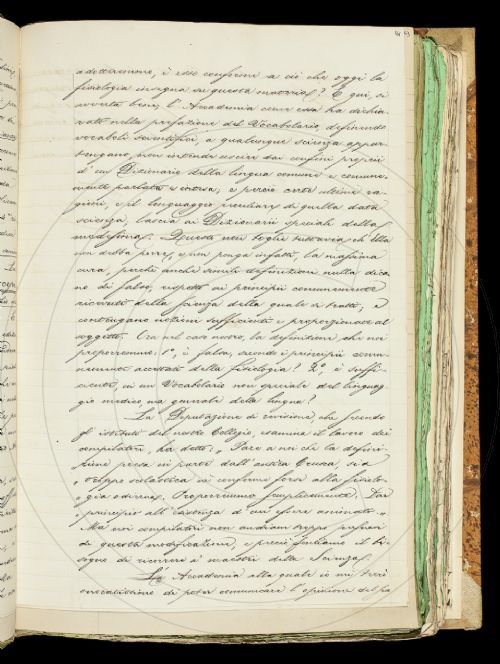 49
adotteremmo, è esso conforme a ciò che oggi la
fisiologia insegna su questa materia? E qui, si
avverta bene, l'Accademia come essa ha dichia-
rato nella prefazione del Vocabolario, definendo
vocaboli scientifici, a qualunque scienza appar-
tengano, non intende uscire dai confini proprii
d'un Dizionario della lingua comune e comune-
mente parlata e intesa; e perciò certe ultime ra-
gioni, e il linguaggio peculiare di quella data
scienza, lascia ai Dizionarii speciali della
medesima. Questo non toglie tuttavia ch'Ella
non debba porre, e non ponga infatti, la massima
cura, perchè anche simili definizioni nulla dica-
no di falso, rispetto ai principii comunemente
ricevuti della scienza della quale si tratta, e
contengano nozioni sufficienti e proporzionate al
soggetto. Ora nel caso nostro, la definizione che noi
proporremmo: 1º, è falsa, secondo i principii comu-
nemente accettati della fisiologia? 2º, è suffi-
ciente, in un Vocabolario non speciale del linguag-
gio medico ma generale della lingua?
La Deputazione di revisione, che secondo
gl'istituti del nostro Collegio, esamina il lavoro dei
compilatori, ha detto: "Pare a noi che la defini-
zione presa in parte dall'antica Crusca, sia
"troppo scolastica nè conforme forse alla fisiolo-
"gia odierna. Proporremmo semplicemente: Dar
"principio all'esistenza d'un essere animato."
Ma noi compilatori non andiam troppo persuasi
di questa modificazione, e perciò sentiamo il bi-
sogno di ricorrere a' maestri della Scienza.
L'Accademia alla quale io mi terrò
di poter comunicare l'opinione del